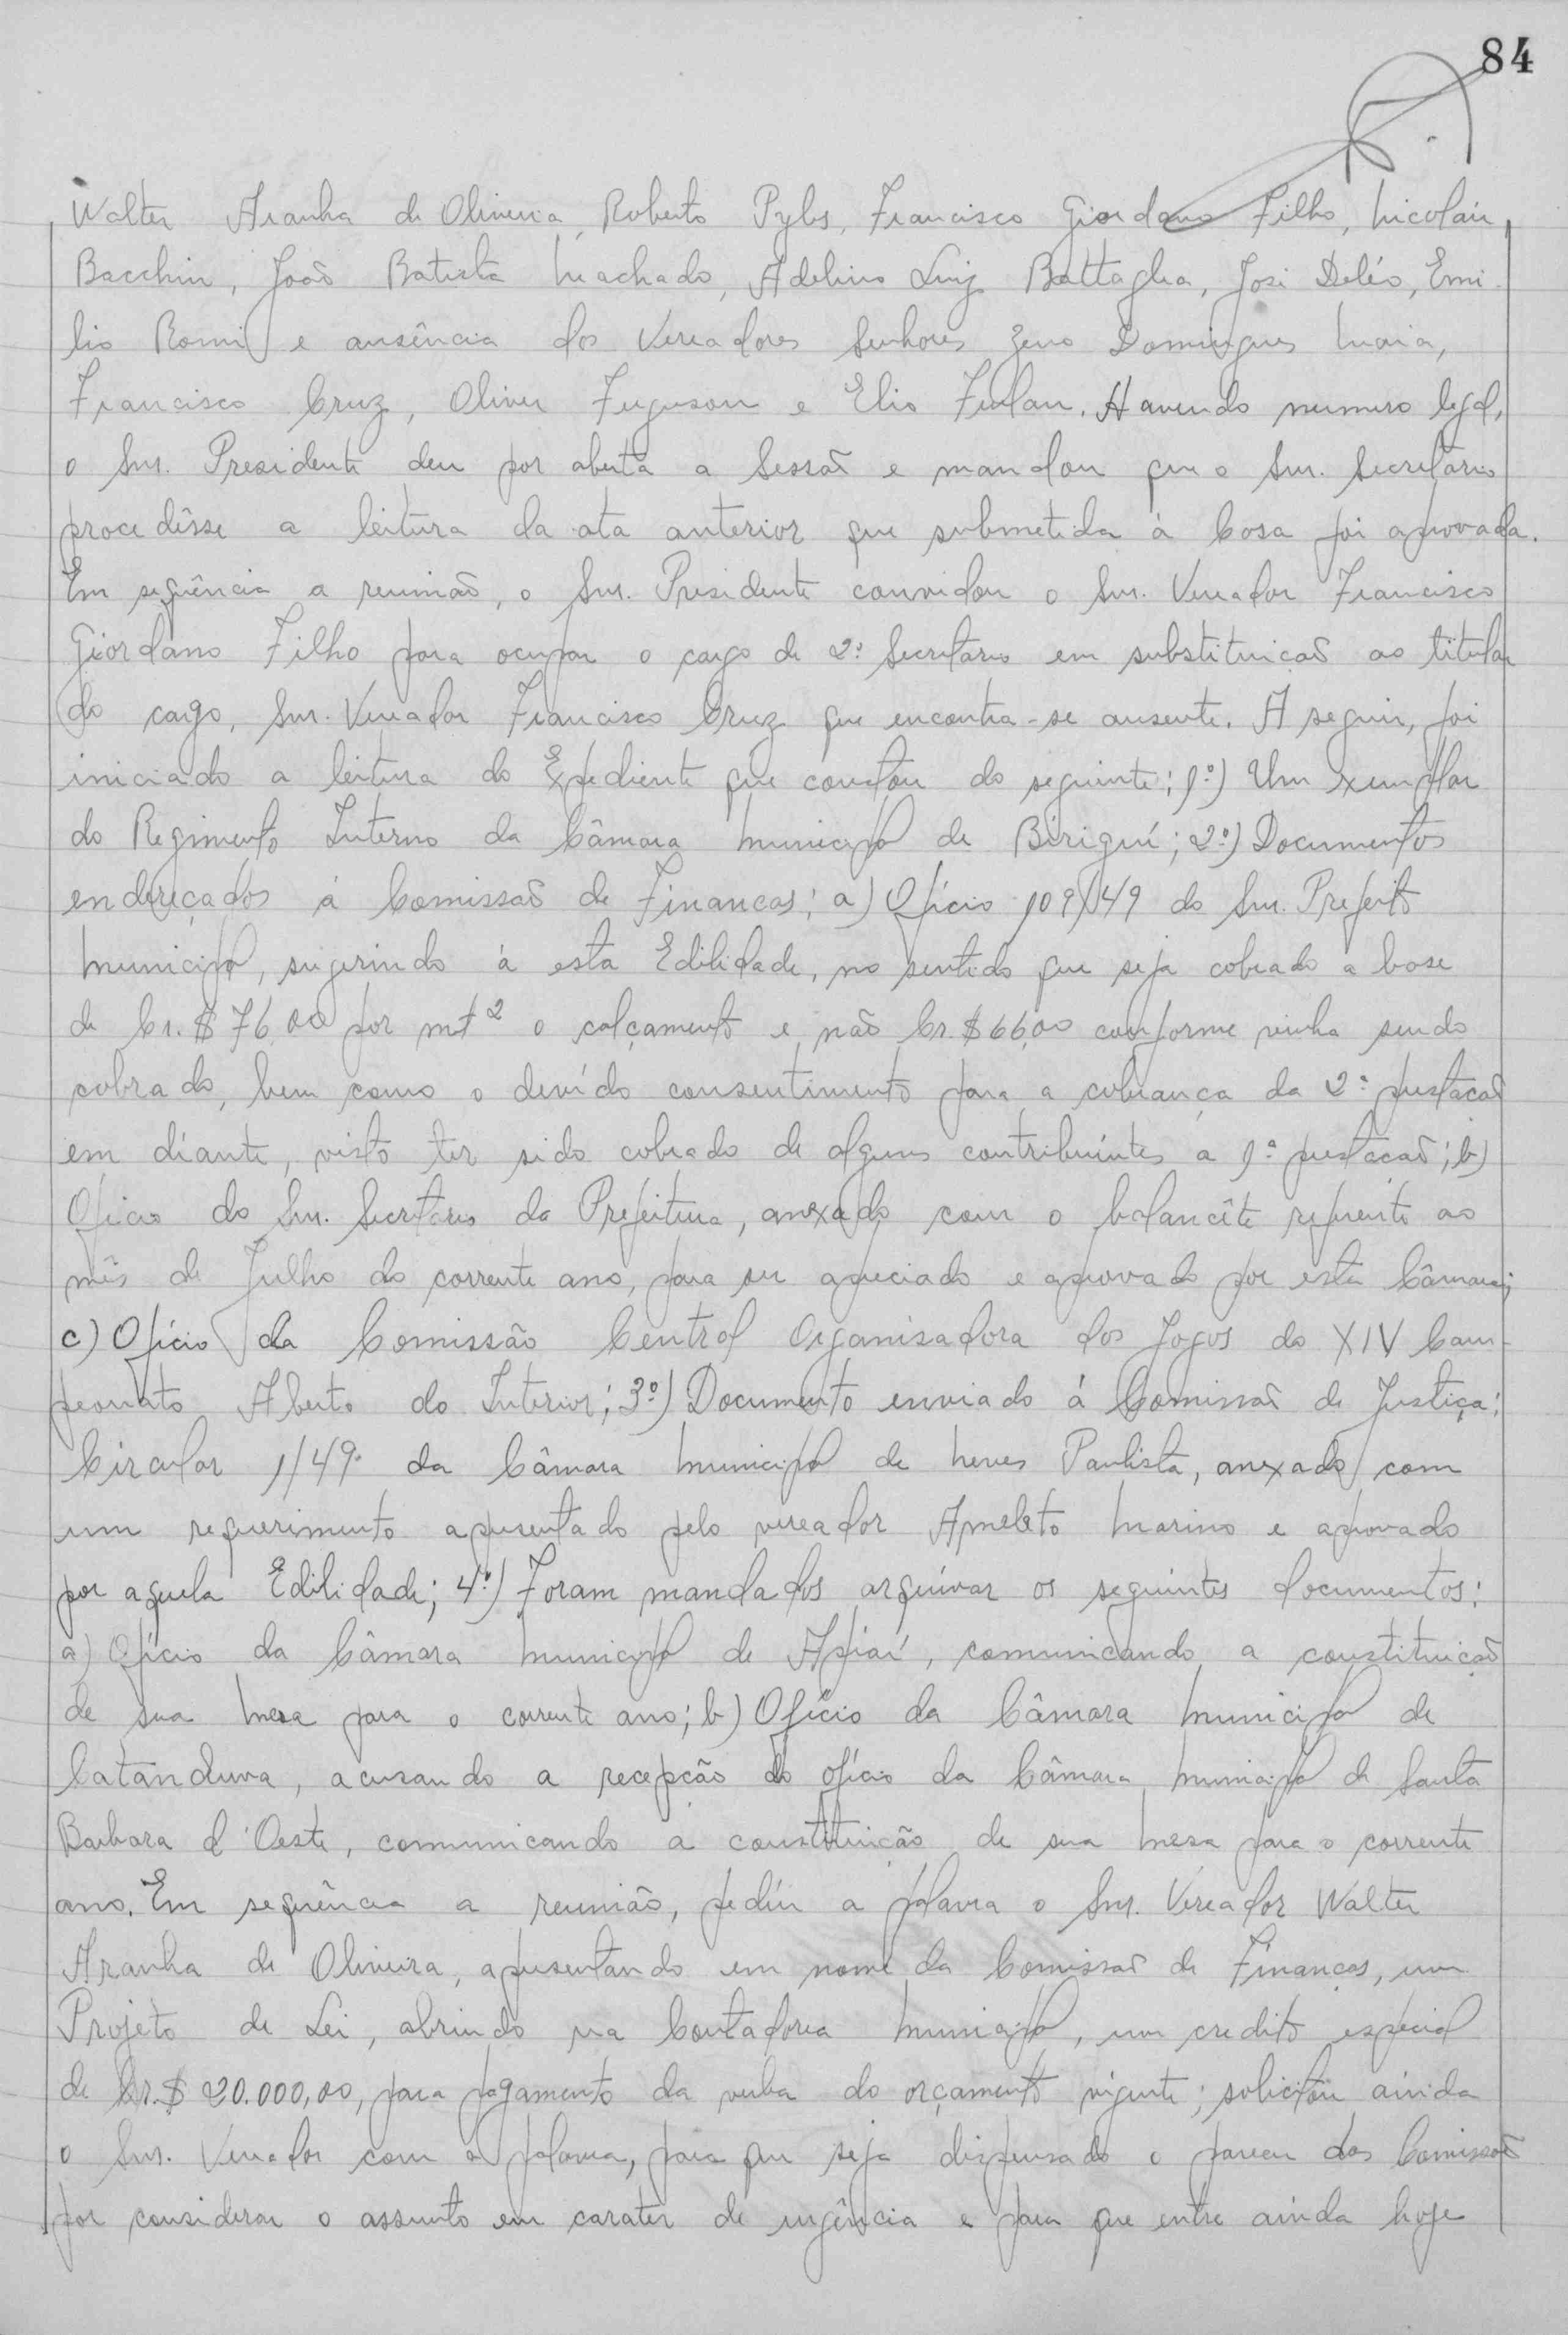 84
Walter Aranha de Oliveira, Roberto Pyles, Francisco Giordano Filho, Nicolau
Bacchin, João Batista Machado, Adelino Luiz Battaglia, José Deléo, Emi-
lio Romi e ausência dos Vereadores Senhores Zeno Domingues Maia,
Francisco Cruz, Oliver Ferguson e Elio Furlan. Havendo numero legal,
o Snr. Presidente deu por aberta a Sessaõ e mandou que o Snr. Secretario
procedêsse a leitura da ata anterior que submetida à Casa foi aprovada.
Em seqûência a reuniaõ, o Snr. Presidente convidou o Snr. Vereador Francisco
Giordano Filho para ocupar o cargo de 2º Secretario em substituiçaõ ao titular
do cargo, Snr. Vereador Francisco Cruz que encontra-se ausente. A seguir, foi
iniciado a leitura do Expediente que constou do seguinte: 1º) Um exemplar
do Regimento Interno da Câmara Municipal de Biriguí; 2º) Documentos
endereçados á Comissaõ de Finanças: a) Ofício 109/49 do Snr. Prefeito
Municipal, sugerindo à esta Edilidade, no sentido que seja cobrado a base
de Cr.$ 76,00 por mt² o calçamento e não Cr.$ 66,00 conforme vinha sendo
cobrado, bem como o devido consentimento para a cobrança da 2ª prestaçaõ
em diante, visto ter sido cobrado de alguns contribuintes a 1ª prestaçaõ; b)
Ofício do Snr. Secretario da Prefeitura, anexado com o balancête referente ao
mês de Julho do corrente ano, para ser apreciado e aprovado por esta Câmara;
c) Ofício da Comissão Central Organisadora dos Jogos do XIV Cam-
peonato Aberto do Interior; 3º) Documento enviado á Comissaõ de Justiça:
Circular 1/49 da Câmara Municipal de Neves Paulista, anexado com
um requerimento apresentado pelo vereador Ameleto Marino e aprovado
por aquela Edilidade; 4º) Foram mandados arquivar os seguintes documentos:
a) Ofício da Câmara Municipal de Apiaí, comunicando a constituiçaõ
de sua Mesa para o corrente ano; b) Ofício da Câmara Municipal de
Catanduva, acusando a recepção do ofício da Câmara Municipal de Santa
Barbara d'Oeste, comunicando a constituição de sua Mesa para o corrente
ano. Em seqûência a reunião, pediu a palavra o Snr. Vereador Walter
Aranha de Oliveira, apresentando em nome da Comissaõ de Finanças, um
Projeto de Lei, abrindo na Contadoria Municipal, um credito especial
de Cr.$ 20.000,00, para pagamento da verba do orçamento vigente; solicitou ainda
o Snr. Vereador com a palavra, para que seja dispensado o parecer das Comissaõ
por considerar o assunto em carater de urgência e para que entre ainda hoje